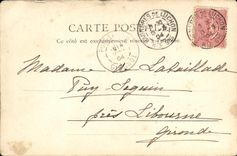 CARTE POSTALE
Ce côté est exclusivement réservé à l'adresse
DE LUCHON
Madame de Lataillade
Puy Seguin
près Libourne
Gironde